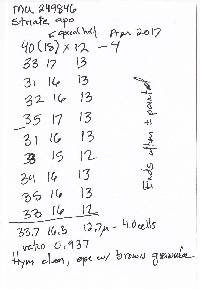 MU 249846
striate apo
Apr 2017
40 (18) x 12 - 4
33 17 13
31 16 13
32 16 13
35 17 13
31 16 13
33 15 12
34 16 13
35 16 13
33 16 12
33.7 16.3 12.7µ - 4.0 cells
ratio 0.937
Hym clear, ope w/ brown granule
Ends often ± pointed